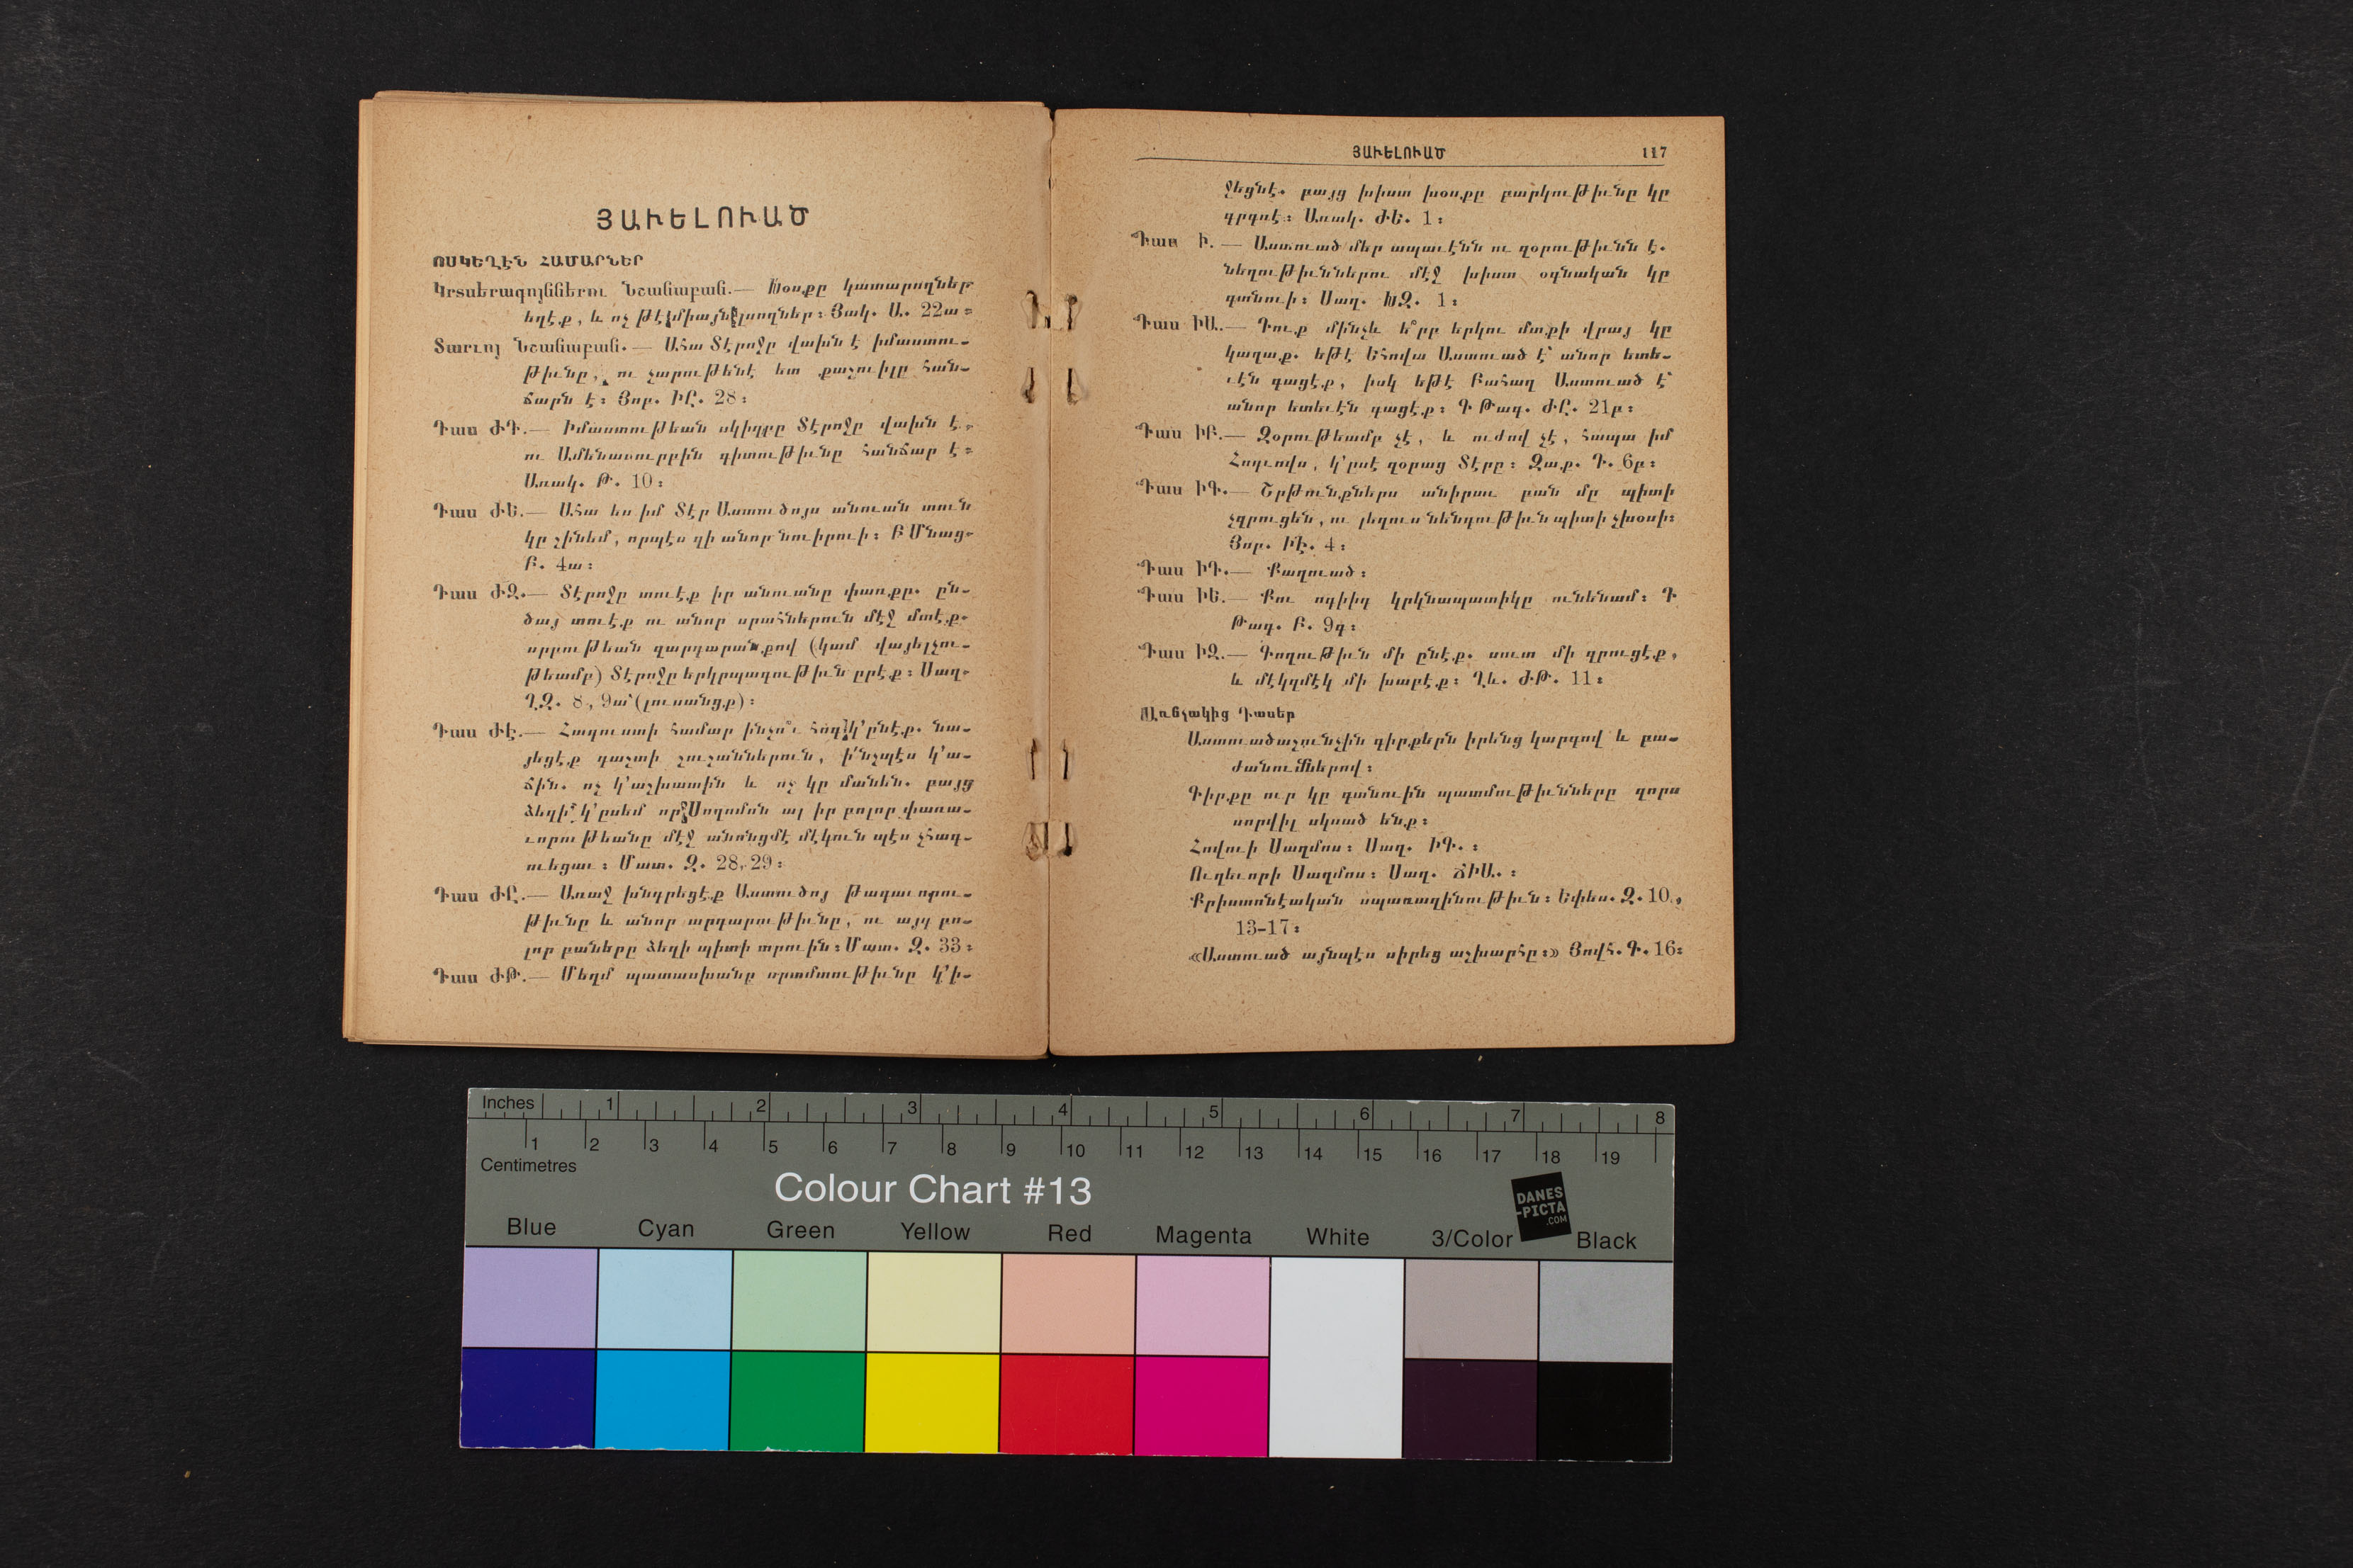 ՅԱՒԵԼՈՒԱԾ
ՈՍԿԵՂԷՆ ՀԱՄԱՐՆԵՐ
Կրտսերագոյններու Նշանաբան.— Խօսքը կատարողներ
եղէք, և ոչ թէ միայն լսողներ։ Յակ. Ա. 22ա։
Տարւոյ Նշանաբան.— Ահա Տէրոջը վախն է իմաստու-
թիւնը, ու չարութենէ ետ քաշուիլը հան-
ճարն է։ Յոբ. ԻԸ. 28։
Դաս ԺԴ.— Իմաստութեան սկիզբը Տէրոջը վախն է,
ու Ամենասուրբին գիտութիւնը հանճար է։
Առակ. Թ. 10։
Դաս ԺԵ.— Ահա ես իմ Տէր Աստուծոյս անուան տուն
կը շինեմ, որպէս զի անոր նուիրուի։ Բ Մնաց.
Բ. 4ա։
Դաս ԺԶ.— Տէրոջը տուէք իր անուանը փառքը. ըն-
ծայ տուէք ու անոր սրահներուն մէջ մտէք.
սրբութեան զարդարանքով (կամ վայելչու-
թեամբ) Տէրոջը երկրպագութիւն ըրէք։ Սաղ.
ՂԶ. 8, 9ա՝ (լուսանցք)։
Դաս ԺԷ.— Հագուստի համար ինչո՞ւ հոգ կ՚ընէք. նա-
յեցէք դաշտի շուշաններուն, ի՛նչպէս կ՚ա-
ճին. ոչ կ՚աշխատին և ոչ կը մանեն. բայց
ձեզի կ՚ըսեմ որ Սողոմոն ալ իր բոլոր փառա-
ւորութեանը մէջ անոնցմէ մէկուն պէս չհագ-
ուեցաւ։ Մատ. Զ. 28, 29։
Դաս ԺԸ.— Առաջ խնդրեցէք Աստուծոյ թագաւորու-
թիւնը և անոր արդարութիւնը, ու այդ բո-
լոր բաները ձեզի պիտի տրուին։ Մատ. Զ. 33։
Դաս ԺԹ.— Մեղմ պատասխանը սրտմտութիւնը կ՚ի-
ՅԱՒԵԼՈՒԱԾ 117
ջեցնէ. բայց խիստ խօսքը բարկութիւնը կը
գրգռէ։ Առակ. ԺԵ. 1։
Դաս Ի.— Աստուած մեր ապաւէնն ու զօրութիւնն է.
նեղութիւններու մէջ խիստ օգնական կը
գտնուի։ Սաղ. ԽԶ. 1։
Դաս ԻԱ.— Դուք մինչև ե՞րբ երկու մտքի վրայ կը
կաղաք. եթէ Եհովա Աստուած է՝ անոր ետե-
ւէն գացէք, իսկ եթէ Բահաղ Աստուած է՝
անոր ետեւէն գացէք։ Գ Թագ. ԺԸ. 21բ։
Դաս ԻԲ.— Զօրութեամբ չէ, և ուժով չէ, հապա իմ
Հոգւովս, կ՚ըսէ զօրաց Տէրը։ Զաք. Դ. 6բ։
Դաս ԻԳ.— Շրթունքներս անիրաւ բան մը պիտի
չզրուցեն, ու լեզուս նենգութիւն պիտի չխօսի։
Յոբ. ԻԷ. 4։
Դաս ԻԴ.— Քաղուած։
Դաս ԻԵ.— Քու ոգիիդ կրկնապատիկը ունենամ։ Դ
Թագ. Բ. 9գ։
Դաս ԻԶ.— Գողութիւն մի ընէք. սուտ մի զրուցէք,
և մէկզմէկ մի խաբէք։ Ղև. ԺԹ. 11։
Առնչակից Դասեր
Աստուածաշունչին գիրքերն իրենց կարգով և բա-
ժանումներով։
Գիրքը ուր կը գտնուին պատմութիւնները զորս
սորվիլ սկսած ենք։
Հովուի Սաղմոս։ Սաղ. ԻԳ.։
Ուղեւորի Սաղմոս։ Սաղ. ՃԻԱ.։
Քրիստոնէական սպառազինութիւն։ Եփես. Զ. 10.,
13-17։
«Աստուած այնպէս սիրեց աշխարհը։» Յովհ. Գ. 16։
Inches 1 2 3 4 5 6 7 8
1 2 3 4 5 6 7 8 9 10 11 12 13 14 15 16 17 18 19
Centimetres
Colour Chart #13
DANES
-PICTA
.COM
Blue Cyan Green Yellow Red Magenta White 3/Color Black